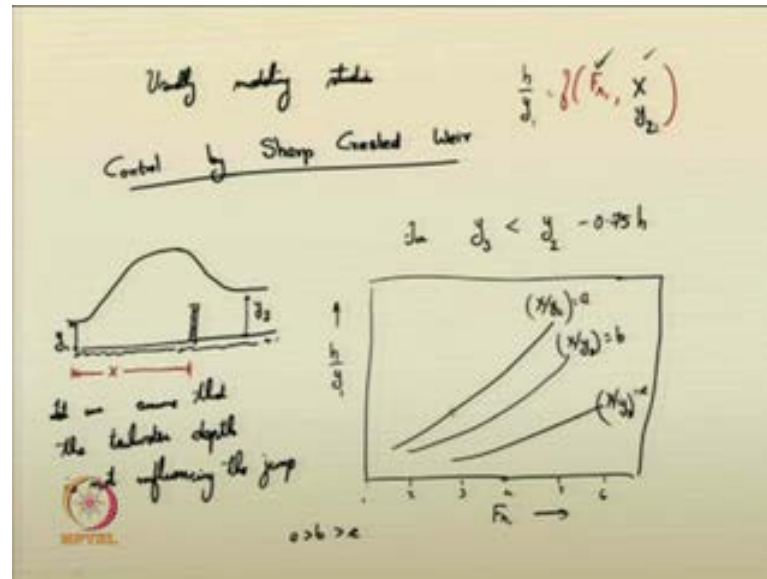 Usually modeling studies
h/y₁ = f(Fr₁, X/y₂)
Control by Sharp Crested Weir
In y₃ < y₂ - 0.75 h
y₁
y₃
X
Let us assume that
the tailwater depth
is not influencing the jump
NPTEL
h/y₁
(X/y₂)=a
(X/y₂)=b
(X/y₂)=c
1 2 3 4 5 6
Fr₁
a>b>c